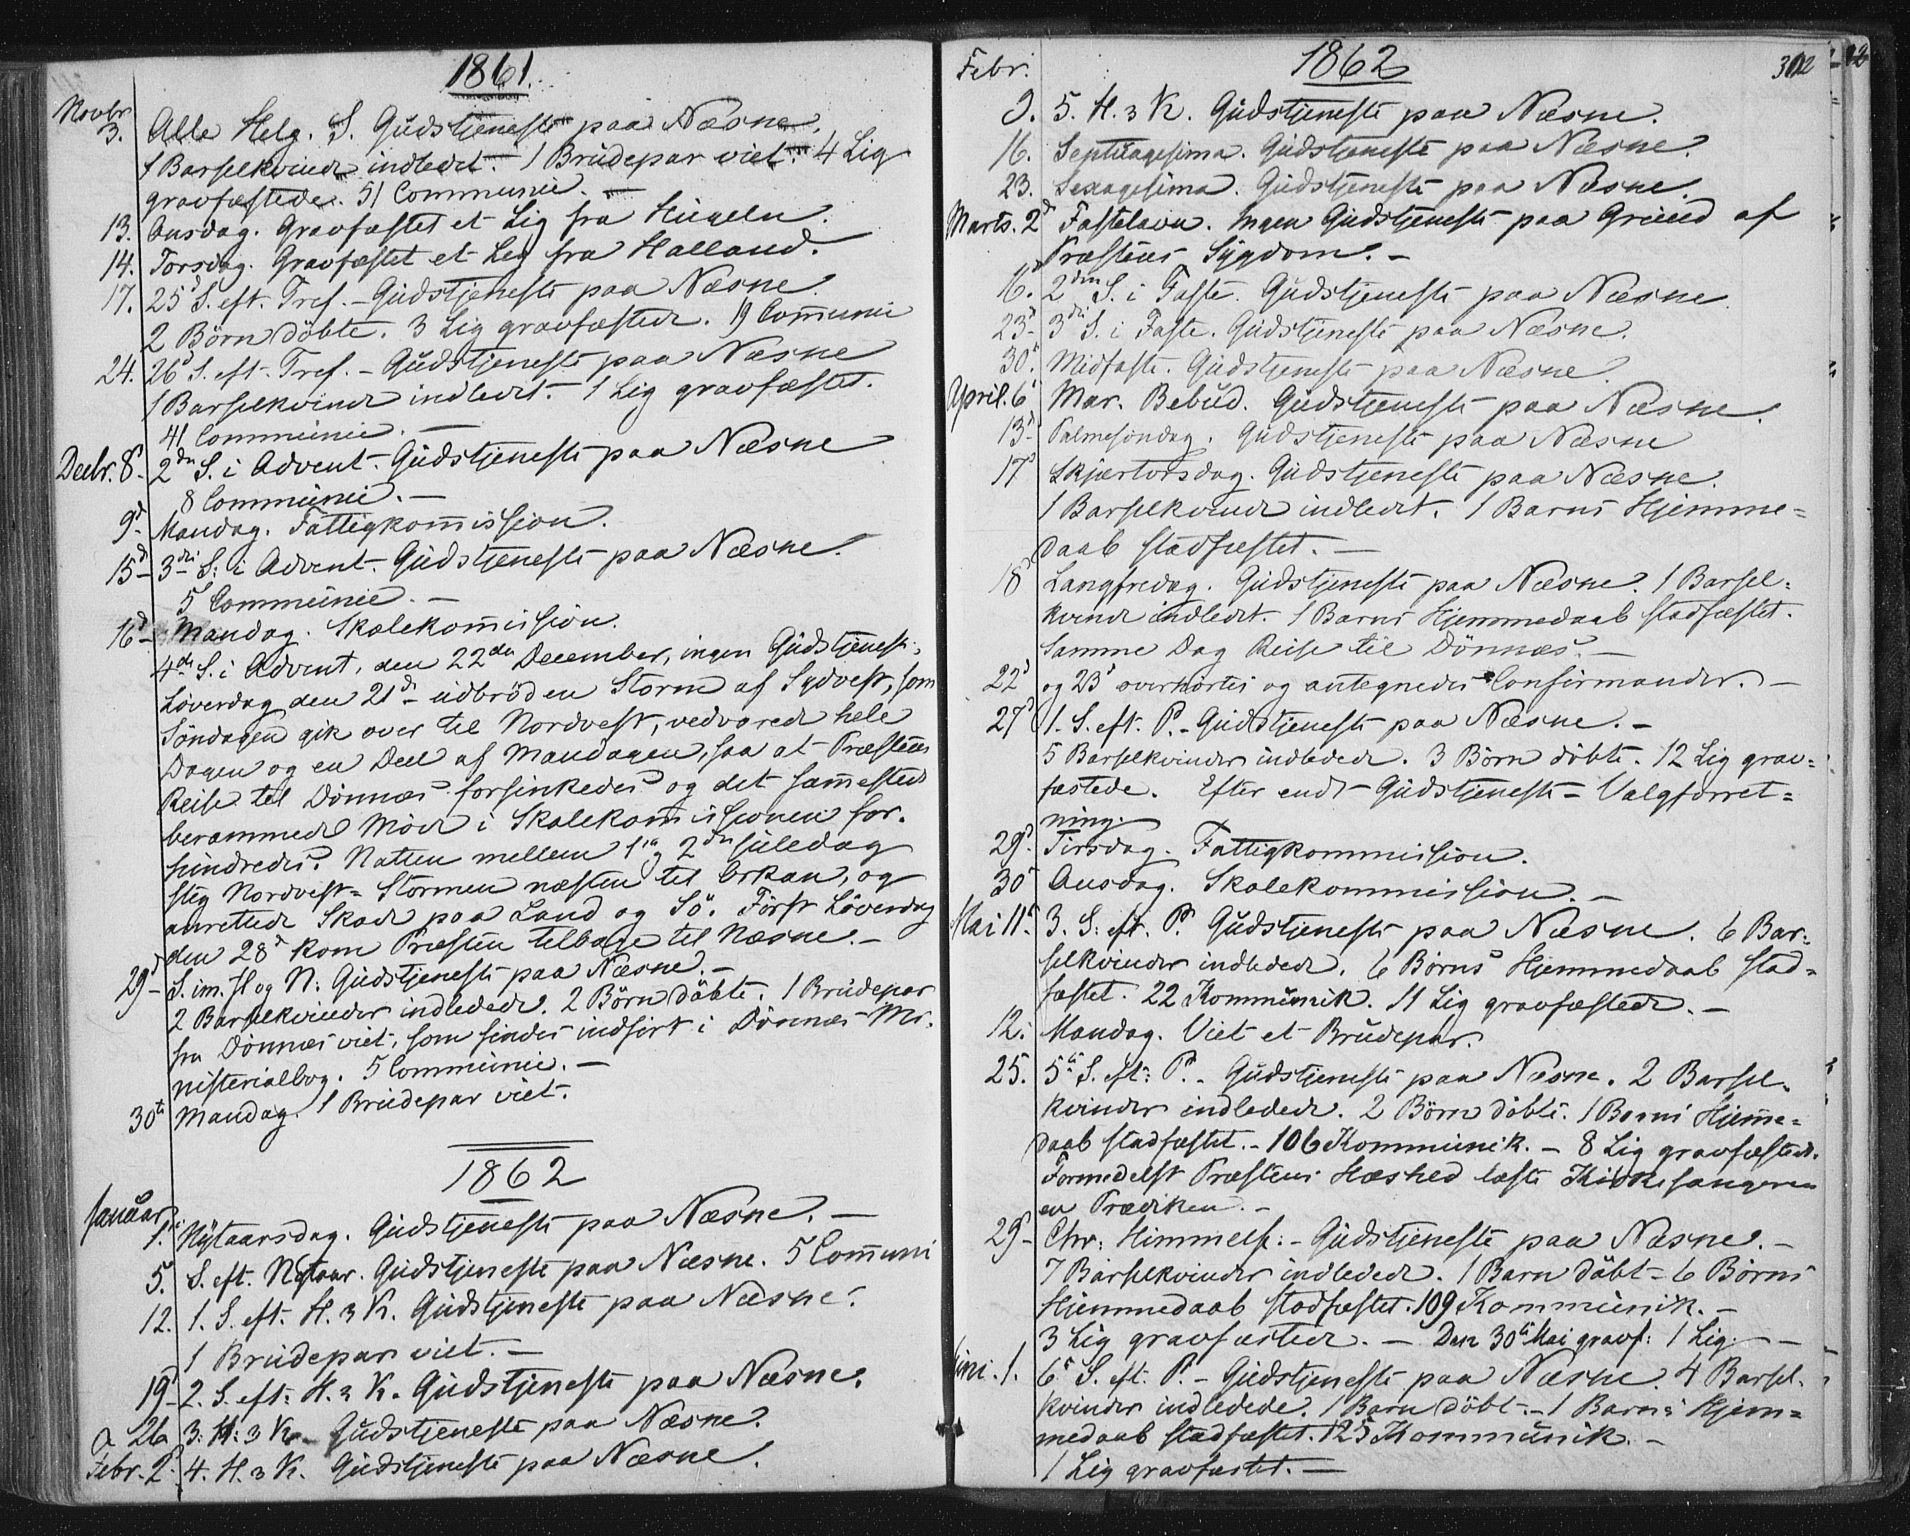 1861.
Novbr. 3. Alle Helg. S. Gudstjeneste paa Næsne.
1 Barselkvinde indledet. 1 Brudepar viet. 4 Lig
gravfæstede. 51 Communic. —
13. Onsdag. Gravfæstet et Lig fra Hugeln.
14. Torsdag. Gravfæstet et Lig fra Halland.
17. 25d S. eft. Tref. – Gudstjeneste paa Næsne
2 Börn döbte. 3 Lig gravfæstede. 19 Communic
24. 26d S. eft. Tref. – Gudstjeneste paa Næsne
1 Barselkvinde indledet. – 1 Lig gravfæstet.
41 Communic. —
Decbr. 8d 2den S. i Advent. Gudstjeneste paa Næsne
8 Communic. —
9d Mandag. Fattigkommission.
15d – 3die S: i Advent. Gudstjeneste paa Næsne.
5 Communic. —
16d – Mandag. Skolekommission.
4de S. i Advent, den 22den December, ingen Gudstjenest.
Löverdag den 21d – udbröd en Storm af Sydvest, som
Söndagen gik over til Nordvest, vedvarede hele
Dagen og en Deel af Mandagen, saa at Præstens
Reise til Dönnæs forsinkedes og det sammesteds
berammede Möde i Skolekommissionen for-
hindredes. Natten mellem 1ste og 2den Juledag
steg Nordvest-Stormen næsten til Orkan, og
anrettede Skade paa Land og Sö. Först Löverdag
den 28d kom Præsten tilbage til Næsne. —
29d – S. im. J. og N: Gudstjeneste paa Næsne. —
2 Barselkvinder indledede. 2 Börn döbte. 1 Brudepar
fra Dönnæs viet, som findes indfört i Dönnæs Mi-
nisterialbog. 5 Communic. —
30te Mandag. 1 Brudepar viet.
1862
Januar 1. Nytaarsdag. Gudstjeneste paa Næsne. —
5. S. eft. Nytaar. Gudstjeneste paa Næsne. 5 Communi
12. 1. S. eft. H. 3 K. Gudstjeneste paa Næsne.
1 Brudepar viet. —
19d – 2. S. eft: H. 3 K. Gudstjeneste paa Næsne.
26 3: H: 3 K. Gudstjeneste paa Næsne.
Febr. 2. 4. H. 3 K. Gudstjeneste paa Næsne.
1862
302
Febr. 9. 5. H. 3 K. Gudstjeneste paa Næsne.
16. Septuagesima. Gudstjeneste paa Næsne.
23. Sexagesima. Gudstjeneste paa Næsne.
Marts. 2d Fastelavn. Ingen Gudstjeneste paa Grund af
Præstens Sygdom. —
16d 2den S. i Faste. Gudstjeneste paa Næsne
23d 3die S. i Faste. Gudstjeneste paa Næsne.
30d Midfaste. Gudstjeneste paa Næsne.
April. 6d Mar. Bebud. Gudstjeneste paa Næsne.
13d Palmesöndag. Gudstjeneste paa Næsne
17d Skjertorsdag. Gudstjeneste paa Næsne.
1 Barselkvinde indledet. 1 Barns Hjemme-
daab stadfæstet. —
18d Langfredag. Gudstjeneste paa Næsne. 1 Barsel-
kvinde indledet. 1 Barns Hjemmedaab stadfæstet.
Samme Dag Reise til Dönnæs. —
22d og 23d overhörtes og antegnedes Confirmander. —
27d 1. S. eft. P. – Gudstjeneste paa Næsne. –
5 Barselkvinder indledede. 3 Börn döbte. 12 Lig grav-
fæstede. Efter endt Gudstjeneste – Valgforret-
ning.
29d Tirsdag. Fattigkommission.
30d Onsdag. Skolekommission. —
Mai 11d. 3. S: eft. P. Gudstjeneste paa Næsne. 6 Bar-
selkvinder indledede. 6 Börns Hjemmedaab stad-
fæstet. 22 Kommunik. 11 Lig gravfæstede. —
12. Mandag. Viet et Brudepar.
25. 5te S. eft: P. – Gudstjeneste paa Næsne. 2 Barsel-
kvinder indledede. 2 Börn döbte. 1 Barns Hjemme-
daab stadfæstet. – 106 Kommunik. – 8 Lig gravfæstede.
Formedelst Præstens Hæshed læste Kirkesangeren
en Prædiken. –
29d – Chr: Himmelf: – Gudstjeneste paa Næsne. –
7 Barselkvinder indledede. 1 Barn döbt – 6 Börns
Hjemmedaab stadfæstet. 109 Kommunik. –
3 Lig gravfæstede. — Den 30te Mai gravf: 1 Lig. —
Juni. 1. 6d S. eft: P. – Gudstjeneste paa Næsne. 4 Barsel-
kvinder indledede. 1 Barn döbt. – 1 Barns Hjem-
medaab stadfæstet. 125 Kommunik. –
1 Lig gravfæstet. —